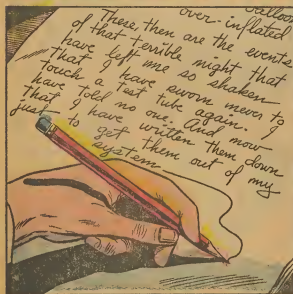 balloon
over-inflated
These then are the events
of that terrible night that
have left me so shaken
that I have sworn never to
touch a test tube again. I
have told no one. And now
that I have written them down
just to get them out of my
system